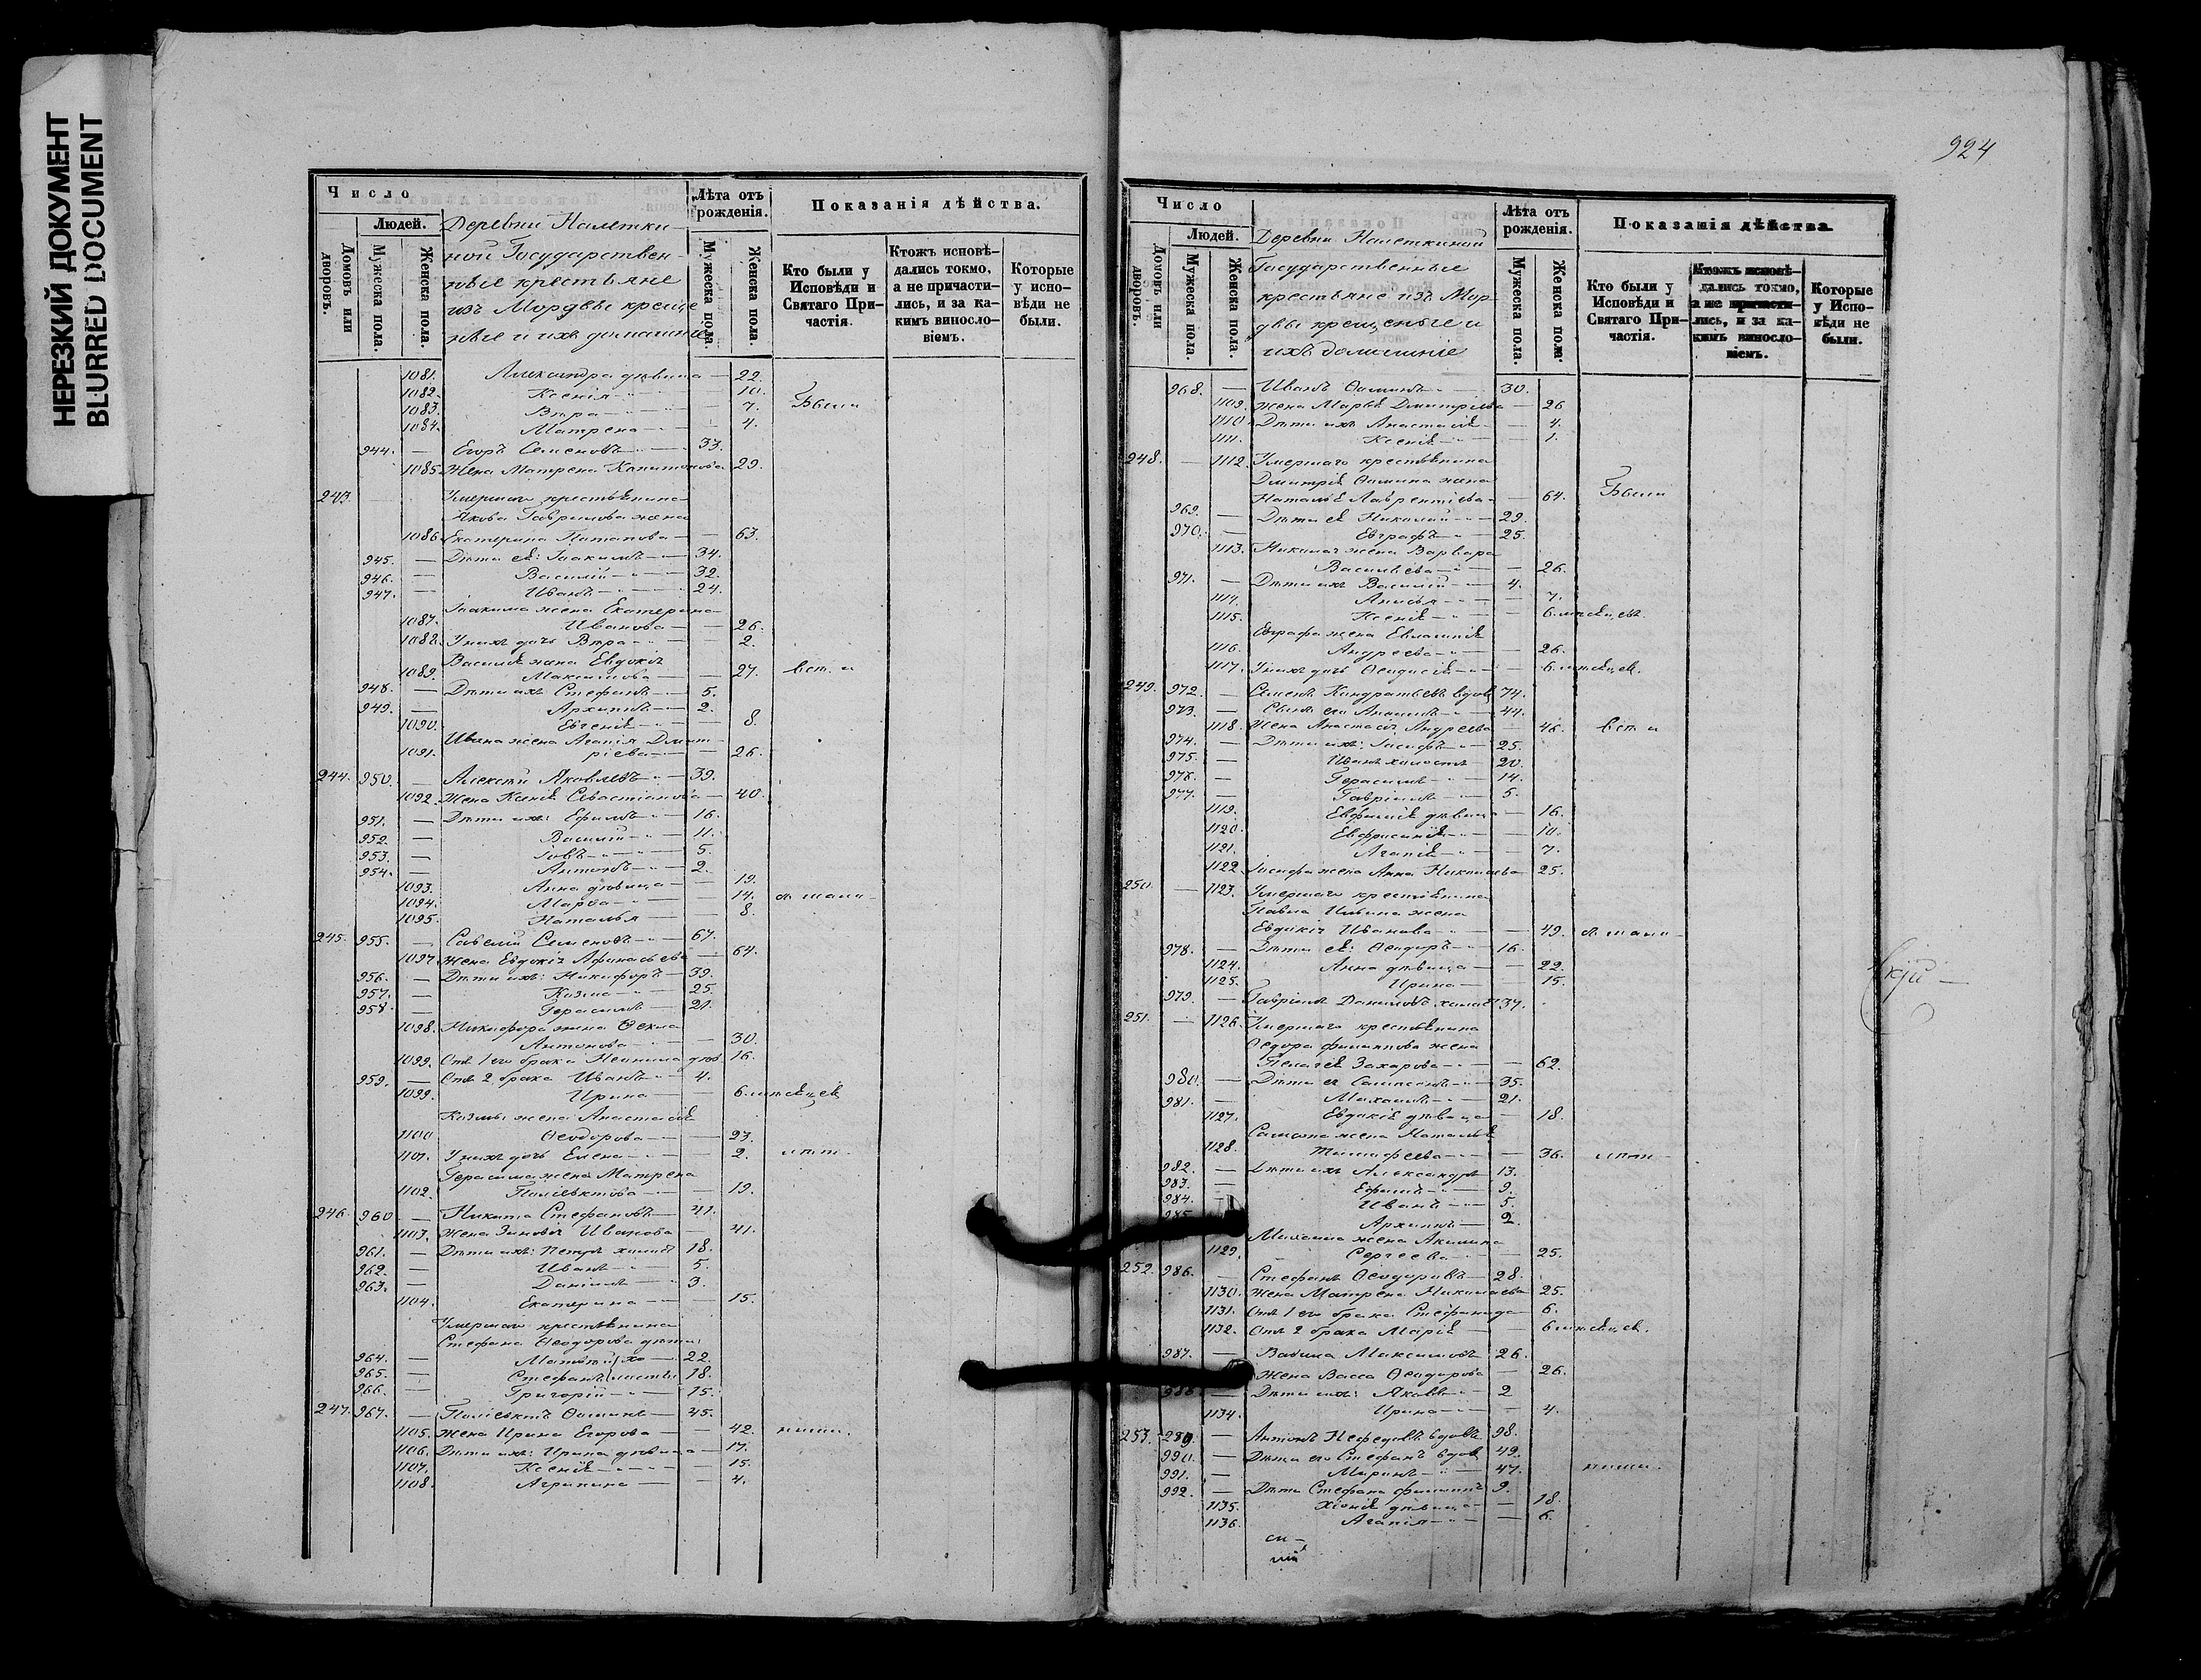 НЕРЕЗКИЙ ДОКУМЕНТ
BLURRED DOCUMENT
Число
Людей.
Домовъ или дворовъ.
Мужеска пола.
Женска пола.
Деревни Налетки-
ной Государствен-
ные крестьяне
изъ Мордвы креще
ные и ихъ домашніе
Лѣта отъ рожденія.
Мужеска пола.
Женска пола.
Показанія дѣйства.
Кто были у Исповѣди и Святаго При-частія.
Ктожъ исповѣ-дались токмо, а не причасти-лись, и за ка-кимъ винословіемъ.
Которые у испо-вѣди не были.
1081. Александра дѣвица — 22.
1082. Ксенія — 10.
1083. Вѣра — 7. Были
1084. Матрена — 4.
944. — Егоръ Семеновъ — 33.
1085. Жена Матрена Капитонова 29.
243. Умершаго крестьянина
Якова Гаврилова жена
1086. Екатерина Потапова — 63.
945. — Дѣти ея: Іоакимъ — 34.
946. — Василій — 32.
947. — Иванъ — 24.
Іоакима жена Екатерина
1087. Иванова — 26.
1088. У нихъ дочь Вѣра — 2.
Василія жена Евдокія
1089. Максимова — 27.
948. — Дѣти ихъ Стефанъ — 5.
949. — Архипъ — 2.
1090. Евгенія — 8.
Ивана жена Агапія Дмит-
1091. ріева — 26.
244. 950. — Алексѣй Яковлевъ — 39.
1092. Жена Ксенія Севастіанова — 40.
951. — Дѣти ихъ: Ефимъ — 16.
952. — Василій — 11.
953. — Іовъ — 5.
954. — Антонъ — 2.
1093. Анна дѣвица — 19.
1094. Марѳа — 14.
1095. Наталья — 8.
245. 955. — Савелій Семеновъ — 67.
1097. Жена Евдокія Афанасьева — 64.
956. — Дѣти ихъ: Никифоръ — 39.
957. — Козма — 25.
958. — Герасимъ — 21.
1098. Никифора жена Ѳекла
Антонова — 30.
1099. Отъ 1го брака Неонила дѣв 16.
959. — Отъ 2 брака Иванъ — 4.
1099. Ирина — 6. мѣсяцевъ
Козмы жена Анастасія
1100 Ѳеодорова — 23.
1101. У нихъ дочь Елена — 2.
Герасима жена Матрена
1102. Поліевктова — 19.
246. 960 — Никита Стефановъ — 41.
1103. Жена Зиновія Иванова — 41.
961. — Дѣти ихъ: Петръ холост 18.
962. — Иванъ — 5.
963. — Даніилъ — 3.
1104. Екатерина — 15.
Умершаго крестьянина
Стефана Ѳеодорова дѣти:
964. — Матвѣй хо — 22.
965. — Стефанъ лосты 18.
966. — Григорій — 15.
247. 967. — Поліевктъ Ѳоминъ — 45.
1105. Жена Ирина Егорова — 42.
1106. Дѣти ихъ: Ирина дѣвица — 17.
1107. Ксенія — 15.
1108. Агрипина — 4.
924
Число
Людей.
Домовъ или дворовъ.
Мужеска пола.
Женска пола.
Деревни Налеткиной
Государственные
крестьяне изъ Мор-
двы крещеные и
ихъ домашніе
Лѣта отъ рожденія.
Мужеска пола.
Женска пола.
Показанія дѣйства.
Кто были у Исповѣди и Святаго При-частія.
Ктожъ исповѣ-дались токмо, а не причасти-лись, и за ка-кимъ винословіемъ.
Которые у Испо-вѣди не были.
968. — Иванъ Ѳоминъ — 30.
1109. Жена Марья Дмитріева — 26
1110. Дѣти ихъ Анастасія — 4.
1111. Ксенія — 1.
248. — 1112. Умершаго крестьянина
Дмитрія Ѳомина жена
Наталья Лаврентіева — 64. Были
969. — Дѣти ея Николай — 29.
970. — Евграфъ — 25.
1113. Николая жена Варвара
Васильева — 26.
971. — Дѣти ихъ Василій — 4.
1114. Анисья — 7.
1115. Ксенія — 6. мѣсяцевъ.
Евграфа жена Евлампія
1116. Андреева — 26.
1117. У нихъ дочь Ѳеодосія — 6. мѣсяцев.
249. 972. — Семенъ Кондратьевъ вдов 74.
973. — Сынъ его — 44.
1118. Жена Анастасія Андреева — 46.
974. — Дѣти ихъ: Іосифъ — 25.
975. — Иванъ холостъ — 20.
976. — Герасимъ — 14.
977. — Гавріилъ — 5.
1119. Евфимія дѣвица — 16.
1120. Евфросинія — 10.
1121. Агапія — 7.
1122. Іосифа жена Анна Николаева — 25.
250. — 1123. Умершаго крестьянина
Павла Ильина жена
Евдокія Иванова — 49.
978. — Дѣти ея: Ѳеодоръ — 16.
1124. Анна дѣвица — 22.
1125. Ирина — 15.
979. — Гавріилъ Даниловъ холост 37.
251. — 1126. Умершаго крестьянина
Ѳедора Филиппова жена
Пелагея Захарова — 62.
980. — Дѣти ея Сампсонъ — 35.
981. — Михаилъ — 21.
1127. Евдокія дѣвица — 18.
Сампсона жена Наталья
1128. Тимофеева — 36.
982. — Дѣти ихъ Александръ — 13.
983. — Ефимъ — 9.
984. — Иванъ — 5.
985. Архипъ — 2.
Михаила жена Акилина
1129. Сергеева — 25.
252. 986. — Стефанъ Ѳеодоровъ — 28.
1130. Жена Матрена Николаева 25.
1131. Отъ 1го брака Стефанида — 6.
1132. Отъ 2 брака Марія — 6 мѣсяцев.
987. — Вавила Максимовъ 26.
Жена Васса Ѳеодорова — 26.
988 — Дѣти ихъ: Яковъ — 2
1134. Ирина — 4.
253. 989. — Антонъ Нефедовъ вдовъ 98.
990. — Дѣти его Стефанъ вдов 49.
991. — Миронъ — 47.
992. — Дѣти Стефана Филиппъ 9.
1135. Хіонія дѣвица — 18.
1136. Агапія — 6.